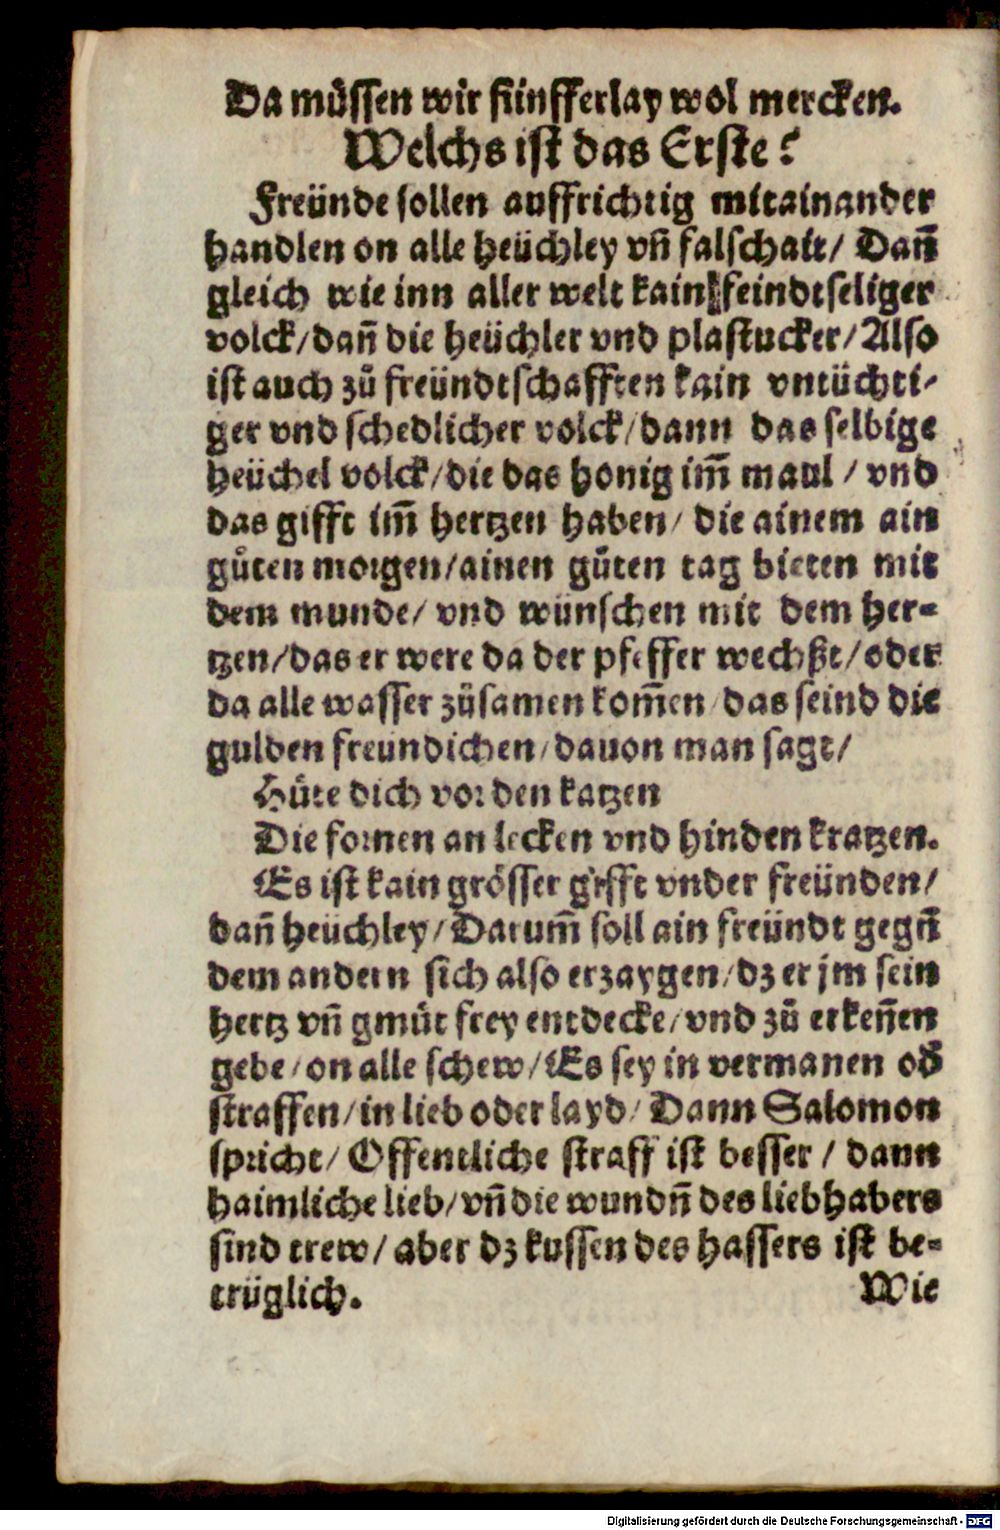 Da müssen wir fünfferlay wol mercken.
Welchs ist das Erste?
Freünde sollen auffrichtig mitainander
handlen on alle heüchley vn̄ falschait/ Dan̄
gleich wie inn aller welt kain feindtseliger
volck/ dan̄ die heüchler vnd plastucker/ Also
ist auch zů freündtschafften kain vntüchti-
ger vnd schedlicher volck/ dann das selbige
heüchel volck/ die das honig im̄ maul / vnd
das gifft im̄ hertzen haben/ die ainem ain
gůten morgen/ ainen gůten tag bieten mit
dem munde/ vnd wünschen mit dem her-
tzen/ das er were da der pfeffer wechßt/ oder
da alle wasser zůsamen kom̄en/ das seind die
gulden freundichen/ dauon man sagt/
Hůte dich vor den katzen
Die fornen an lecken vnd hinden kratzen.
Es ist kain grösser gifft vnder freünden/
dan̄ heüchley/ Darum̄ soll ain freündt gegn̄
dem andern sich also erzaygen/ dz er jm sein
hertz vn̄ gmůt frey entdecke/ vnd zů erken̄en
gebe/ on alle schew/ Es sey in vermanen od̓
straffen/ in lieb oder layd/ Dann Salomon
spricht/ Offentliche straff ist besser / dann
haimliche lieb/ vn̄ die wundn̄ des liebhabers
sind trew/ aber dz kussen des hassers ist be-
trüglich.
Wie
Digitalisierung gefördert durch die Deutsche Forschungsgemeinschaft - DFG